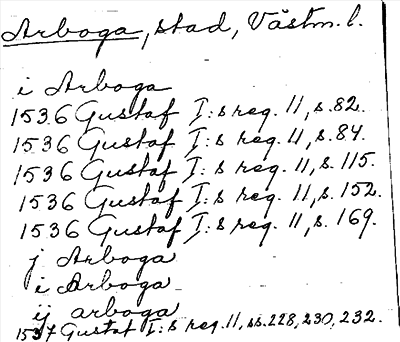 Arboga, stad, Västm. l.
i Arboga
1536 Gustaf I:s reg. 11, s. 82.
1536 Gustaf I:s reg. 11, s. 84.
1536 Gustaf I:s reg. 11, s. 115.
1536 Gustaf I:s reg. 11, s. 152.
1536 Gustaf I:s reg. 11, s. 169.
j Arboga
i Arboga
ij arboga
1537 Gustaf I:s reg. 11, ss. 228, 230, 232.